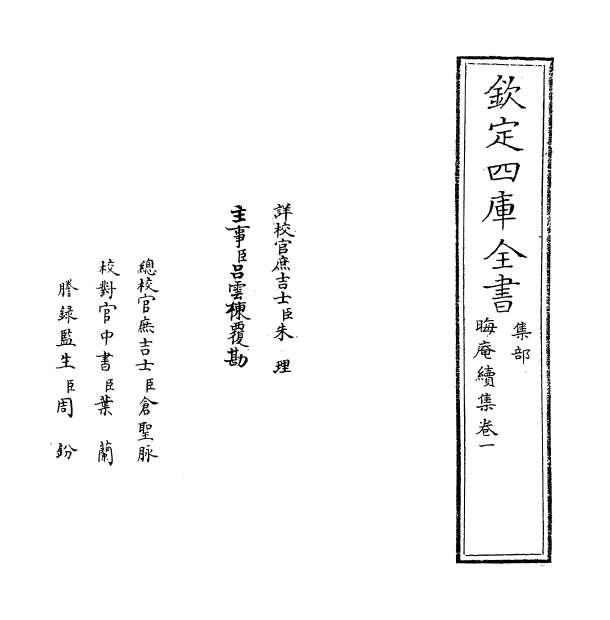 欽定四庫全書
集部
晦庵續集卷一
詳校官庶吉士臣朱理
主事臣呂雲棟覆勘
總校官庶吉士臣倉聖脉
校對官中書臣葉蘭
謄録監生臣周鈖